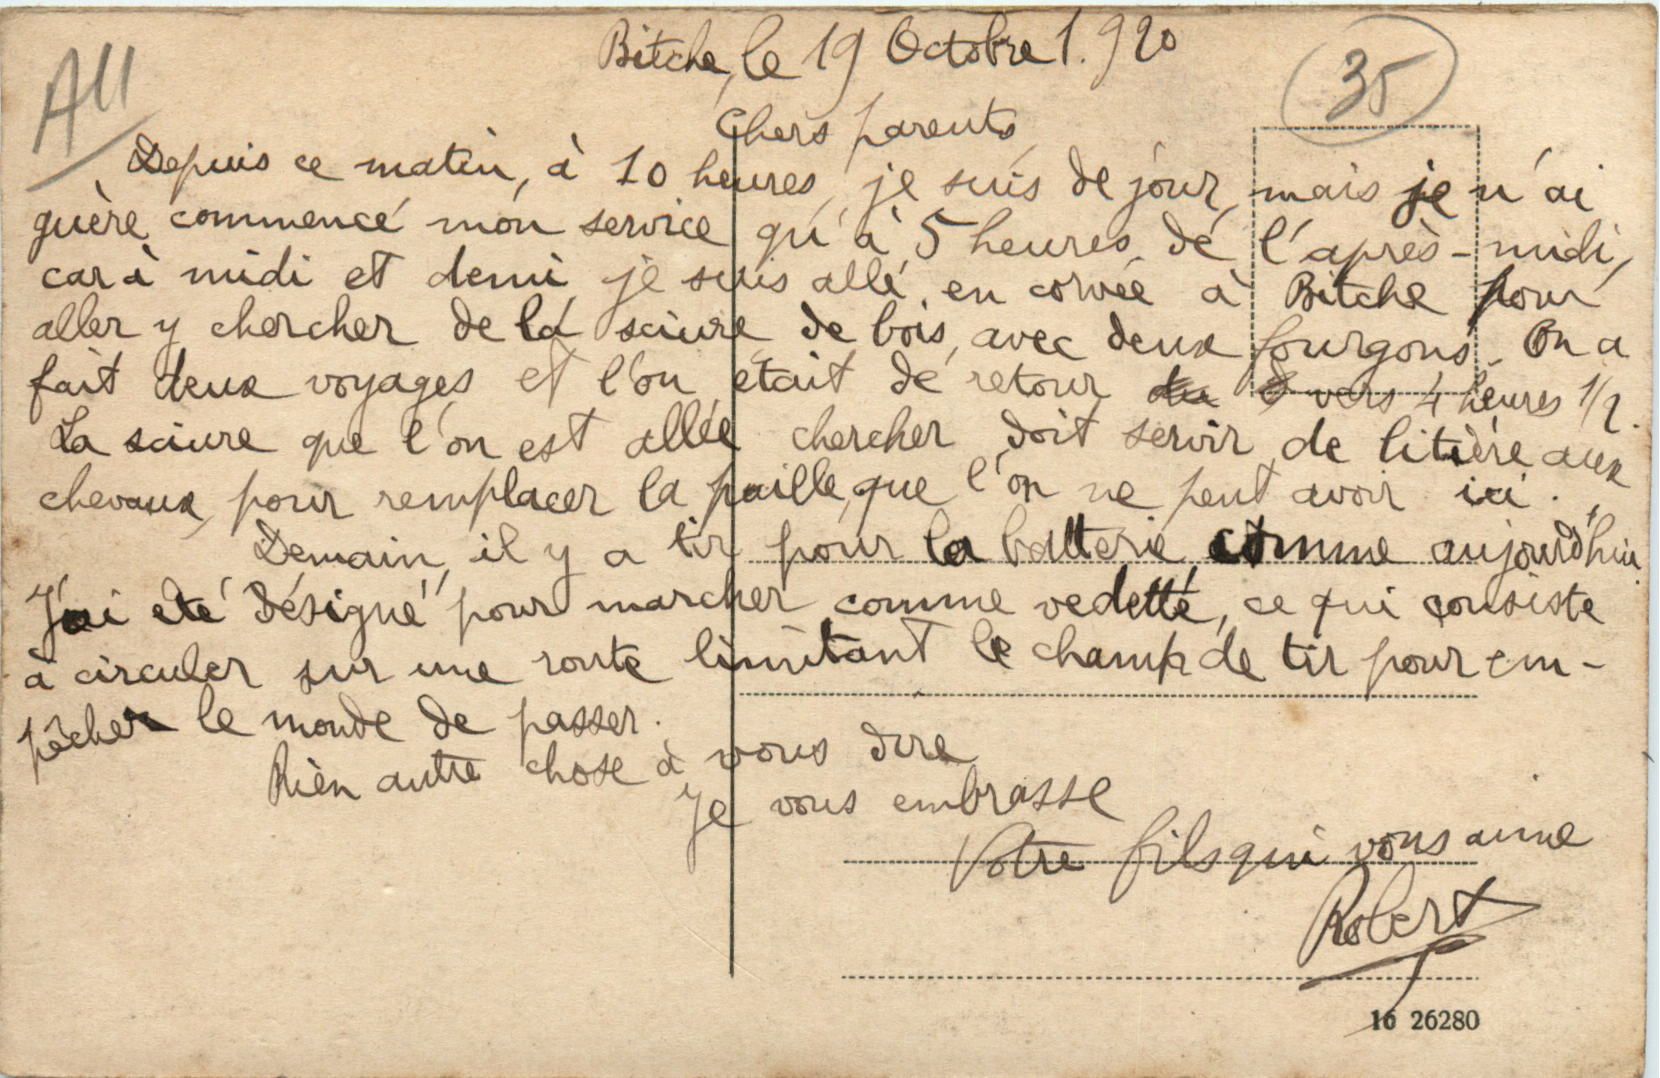 Bitche, le 19 Octobre 1.920
A11
35
Chers parents,
Depuis ce matin, à 10 heures, je suis de jour, mais je n'ai
guère commencé mon service qu'à 5 heures de l'après-midi,
car à midi et demi je suis allé en corvée à Bitche pour
aller y chercher de la sciure de bois, avec deux fourgons. On a
fait deux voyages et l'on était de retour vers 4 heures 1/2.
La sciure que l'on est allée chercher doit servir de litière aux
chevaux, pour remplacer la paille, que l'on ne peut avoir ici.
Demain, il y a tir pour la batterie comme aujourd'hui.
J'ai été désigné pour marcher comme vedette, ce qui consiste
à circuler sur une route limitant le champ de tir pour em-
pêcher le monde de passer.
Rien autre chose à vous dire
Je vous embrasse
Votre fils qui vous aime
Robert
16 26280